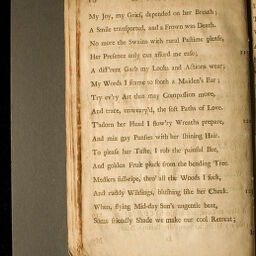 My Joy, my Grief, depended on her Breath;
A Smile transported, and a Frown was Death.
No more the Swains with rural Pastime please,
Her Presence only can afford me ease;
A diff'rent Garb my Looks and Actions wear;
My Words I frame to sooth a Maiden's Ear;
Try ev'ry Art that may Compassion move,
And trace, unweary'd, the soft Paths of Love.
T'adorn her Head I flow'ry Wreaths prepare,
And mix gay Pansies with her shining Hair.
To please her Taste, I rob the painful Bee,
And golden Fruit pluck from the bending Tree.
Medlers full-ripe, thro' all the Woods I seek,
And ruddy Wildings, blushing like her Cheek.
When, flying Mid-day Sun's ungentle heat,
Some friendly Shade we make our cool Retreat;